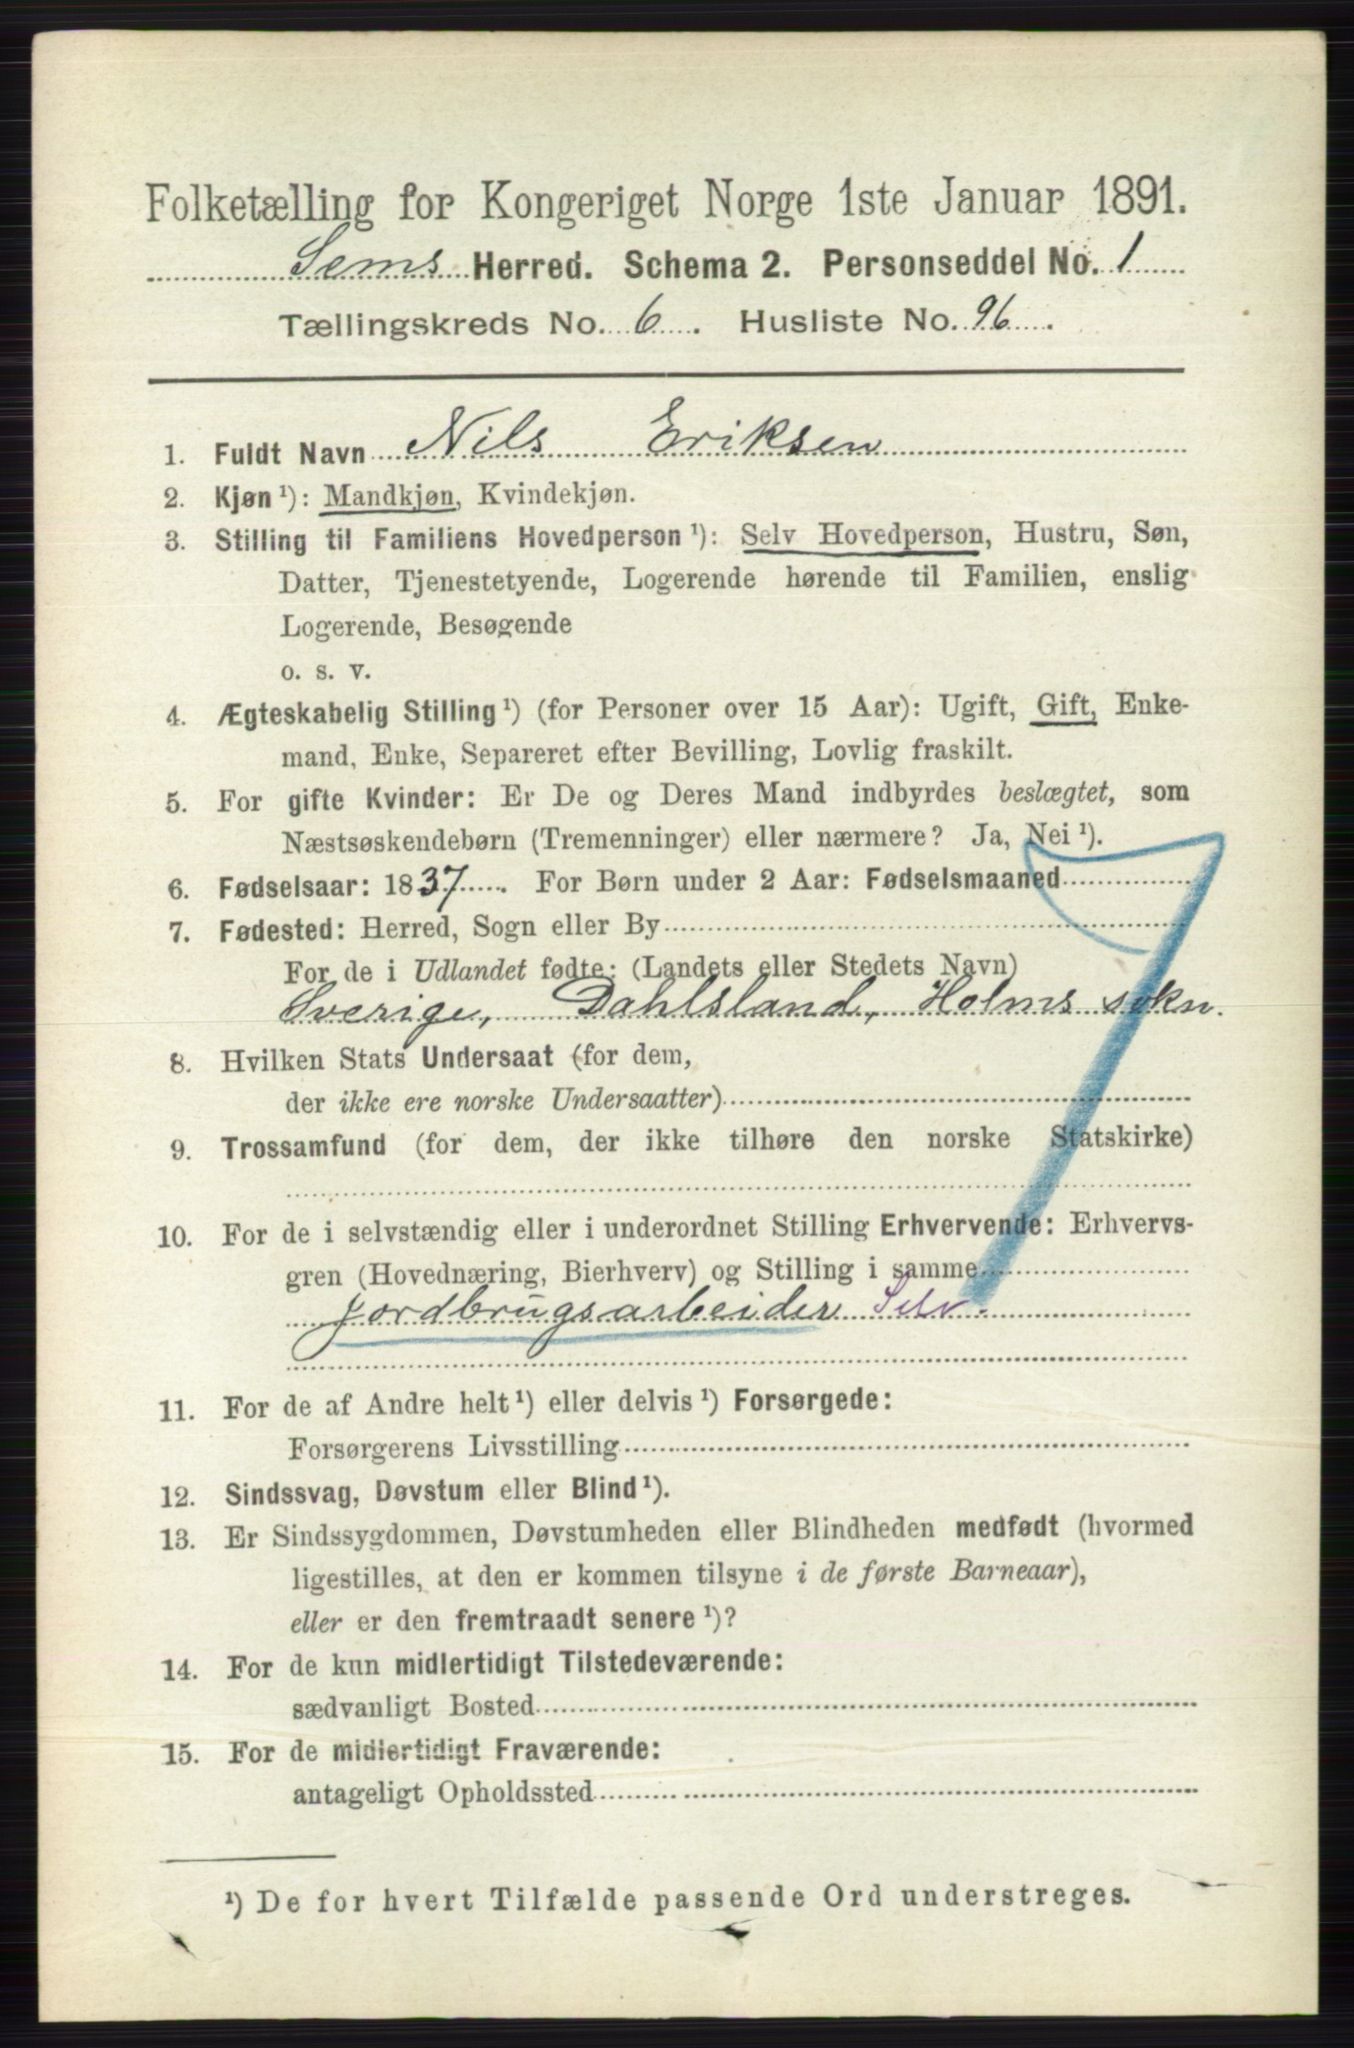 Folketælling for Kongeriget Norge 1ste Januar 1891.
Sems Herred. Schema 2. Personseddel No. 1
Tællingskreds No. 6. Husliste No. 96.
1. Fuldt Navn Nils Eriksen
2. Kjøn ¹): Mandkjøn, Kvindekjøn.
3. Stilling til Familiens Hovedperson ¹): Selv Hovedperson, Hustru, Søn,
Datter, Tjenestetyende, Logerende hørende til Familien, enslig
Logerende, Besøgende
o. s. v.
4. Ægteskabelig Stilling ¹) (for Personer over 15 Aar): Ugift, Gift, Enke-
mand, Enke, Separeret efter Bevilling, Lovlig fraskilt.
5. For gifte Kvinder: Er De og Deres Mand indbyrdes beslægtet, som
Næstsøskendebørn (Tremenninger) eller nærmere? Ja, Nei ¹).
6. Fødselsaar: 1837. For Børn under 2 Aar: Fødselsmaaned
7. Fødested: Herred, Sogn eller By
For de i Udlandet fødte: (Landets eller Stedets Navn)
Sverige, Dahlsland, Holms sokn.
8. Hvilken Stats Undersaat (for dem,
der ikke ere norske Undersaatter)
9. Trossamfund (for dem, der ikke tilhøre den norske Statskirke)
10. For de i selvstændig eller i underordnet Stilling Erhvervende: Erhvervs-
gren (Hovednæring, Bierhverv) og Stilling i samme
Jordbrugsarbeider Selv.
11. For de af Andre helt ¹) eller delvis ¹) Forsørgede:
Forsørgerens Livsstilling
12. Sindssvag, Døvstum eller Blind ¹).
13. Er Sindssygdommen, Døvstumheden eller Blindheden medfødt (hvormed
ligestilles, at den er kommen tilsyne i de første Barneaar),
eller er den fremtraadt senere ¹)?
14. For de kun midlertidigt Tilstedeværende:
sædvanligt Bosted
15. For de midlertidigt Fraværende:
antageligt Opholdssted
¹) De for hvert Tilfælde passende Ord understreges.